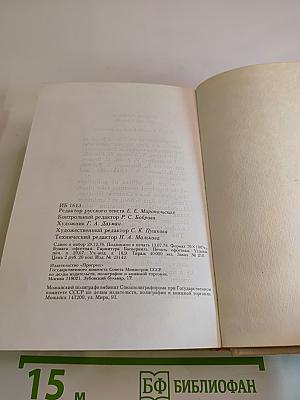 ИБ 1613
Редактор русского текста Е. Е.
Контрольный редактор Р. С. Боброва
Художник Г. А. Даумян
Художественный редактор С. К. Пушкова
Технический редактор Н. А. Малькова
Сдано в набор 29.12.78. Подписано в печать Формат
Бумага офсетная. Гарнитура Баскервиль. Печать офсетная.
Тираж 40 000 экз. Заказ №
Цена 2 руб. 20 коп. Изд. № 25143
Издательство «Прогресс»
Государственного комитета Совета Министров СССР
по делам издательств, полиграфии и книжной торговли.
Москва 119021, Зубовский бульвар, 17
Можайский полиграфкомбинат Союзполиграфпрома при Государственном
комитете СССР по делам издательств, полиграфии и книжной торговли.
Можайск 143200, ул. Мира, 93.
15 м
БФ БИБЛИОФАН